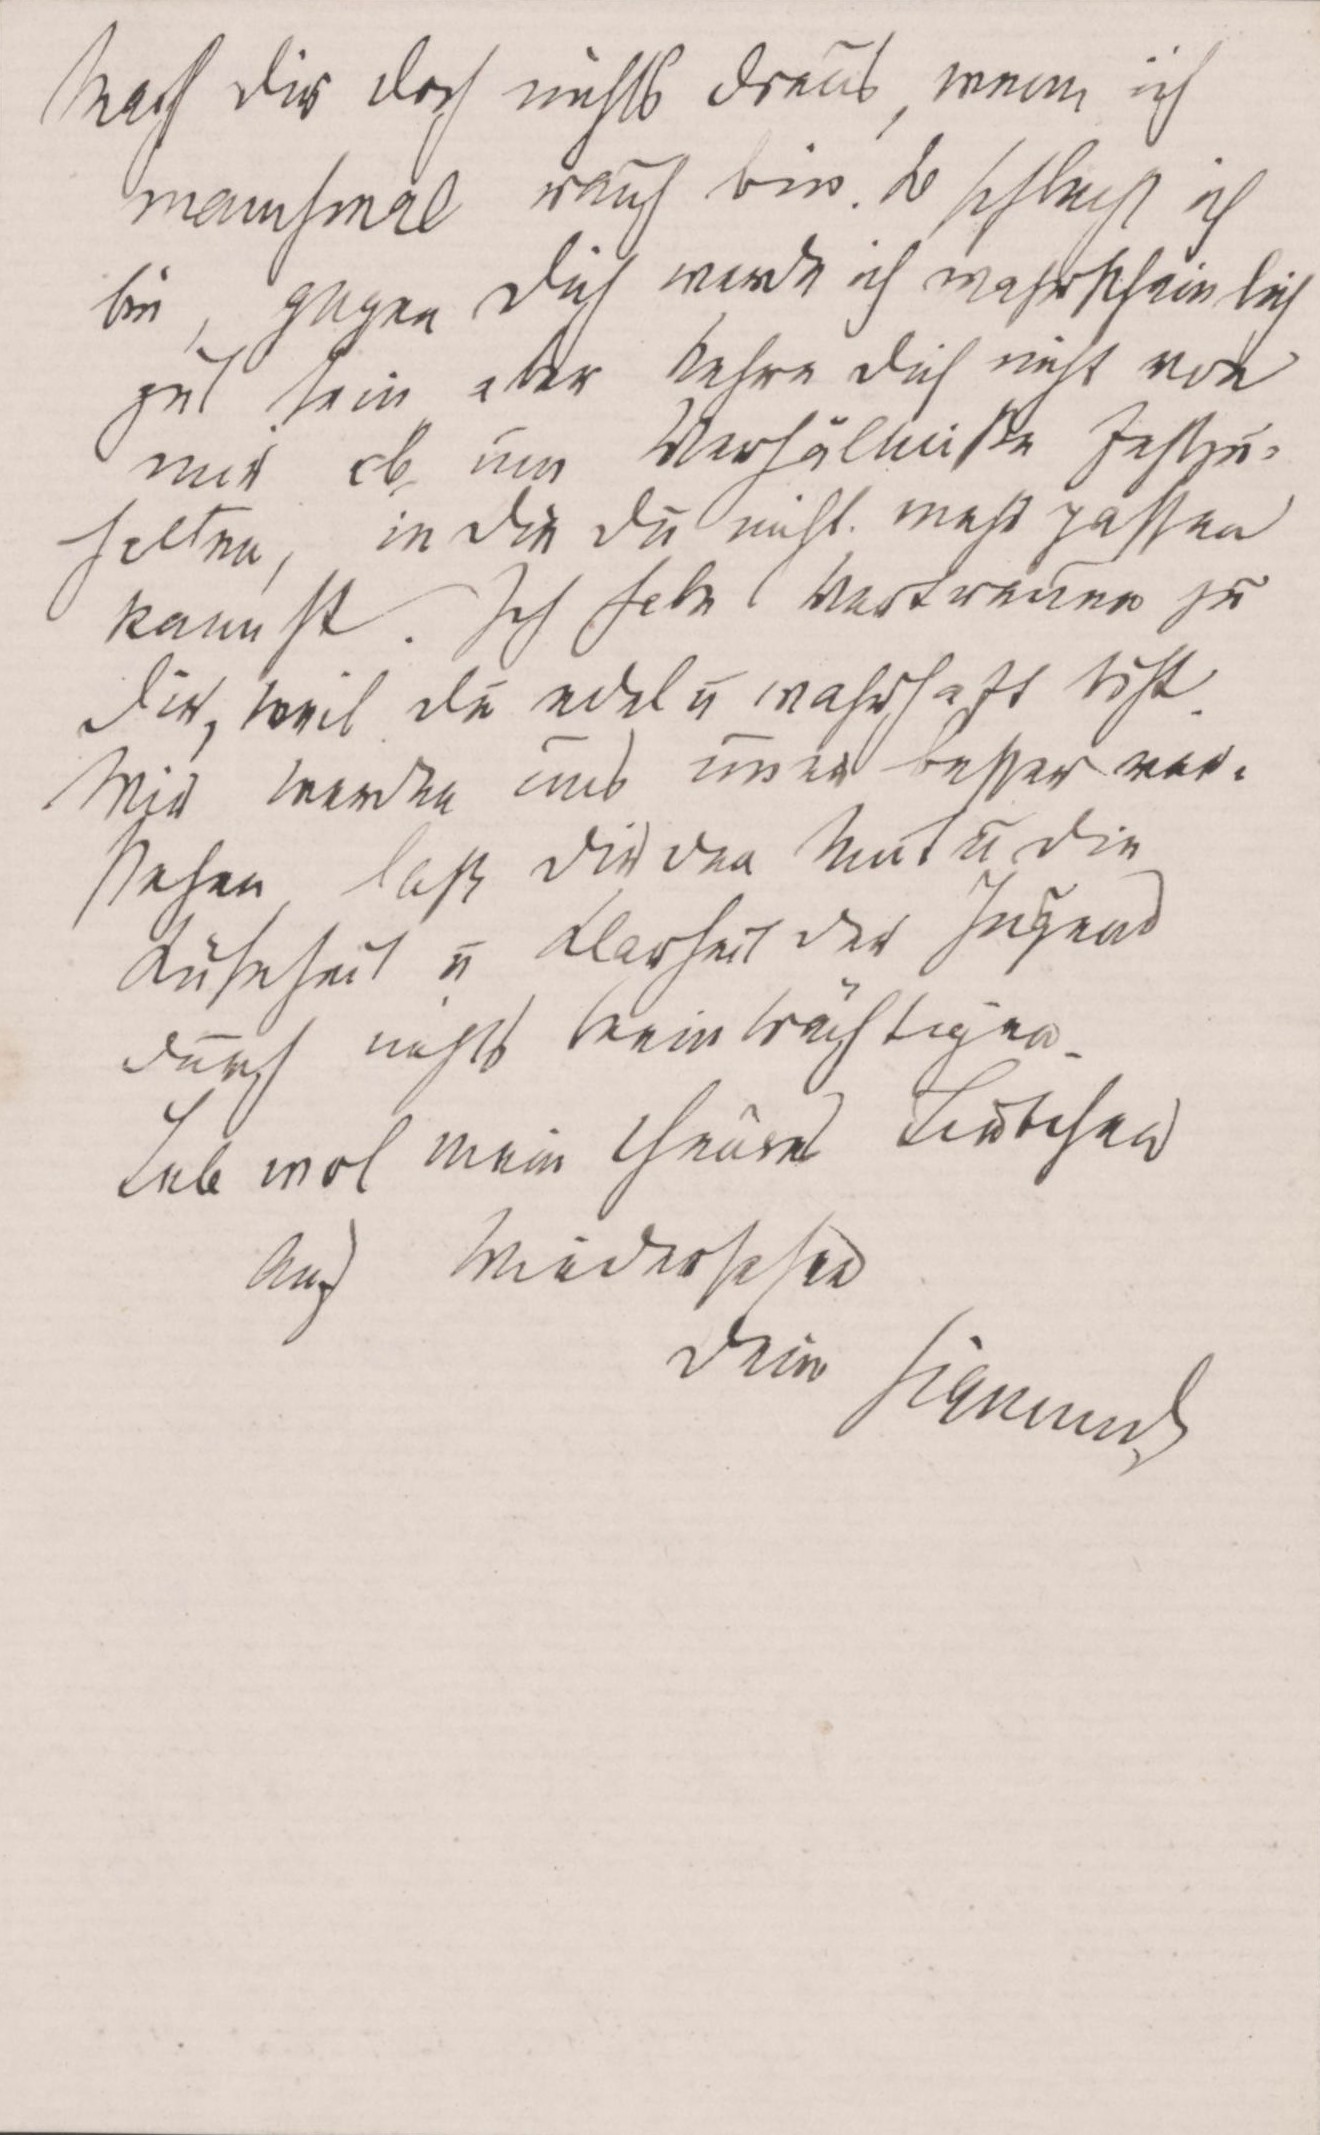 Mach Dir doch nichts draus, wenn ich
manchmal rauh bin. So schlecht ich
bin, gegen Dich werde ich wahrscheinlich
gut sein, aber kehre Dich nicht von
mir ab, um Verhältnisse festzu-
halten, in die Du nicht mehr passen
kannst. Ich habe Vertrauen zu
Dir, weil Du edel u wahrhaft bist.
Wir werden uns immer besser ver-
stehen, laß Dir den Mut u die
u Klarheit der Jugend
durch nichts beeinträchtigen.
Leb wol mein theures Liebchen
Auf Wiedersehen
Dein Sigmund